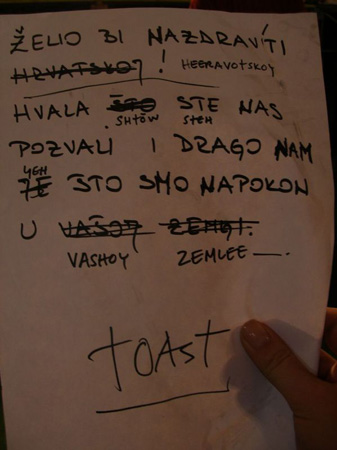 ŽELIO BI NAZDRAVITI
HRVATSKOJ ! HEERAVOTSKOY
HVALA ŠTO STE NAS
SHTOW STEH
POZVALI I DRAGO NAM
YEH
JE ŠTO SMO NAPOKON
U VAŠOJ ZEMLJI.
VASHOY ZEMLEE —.
TOAST